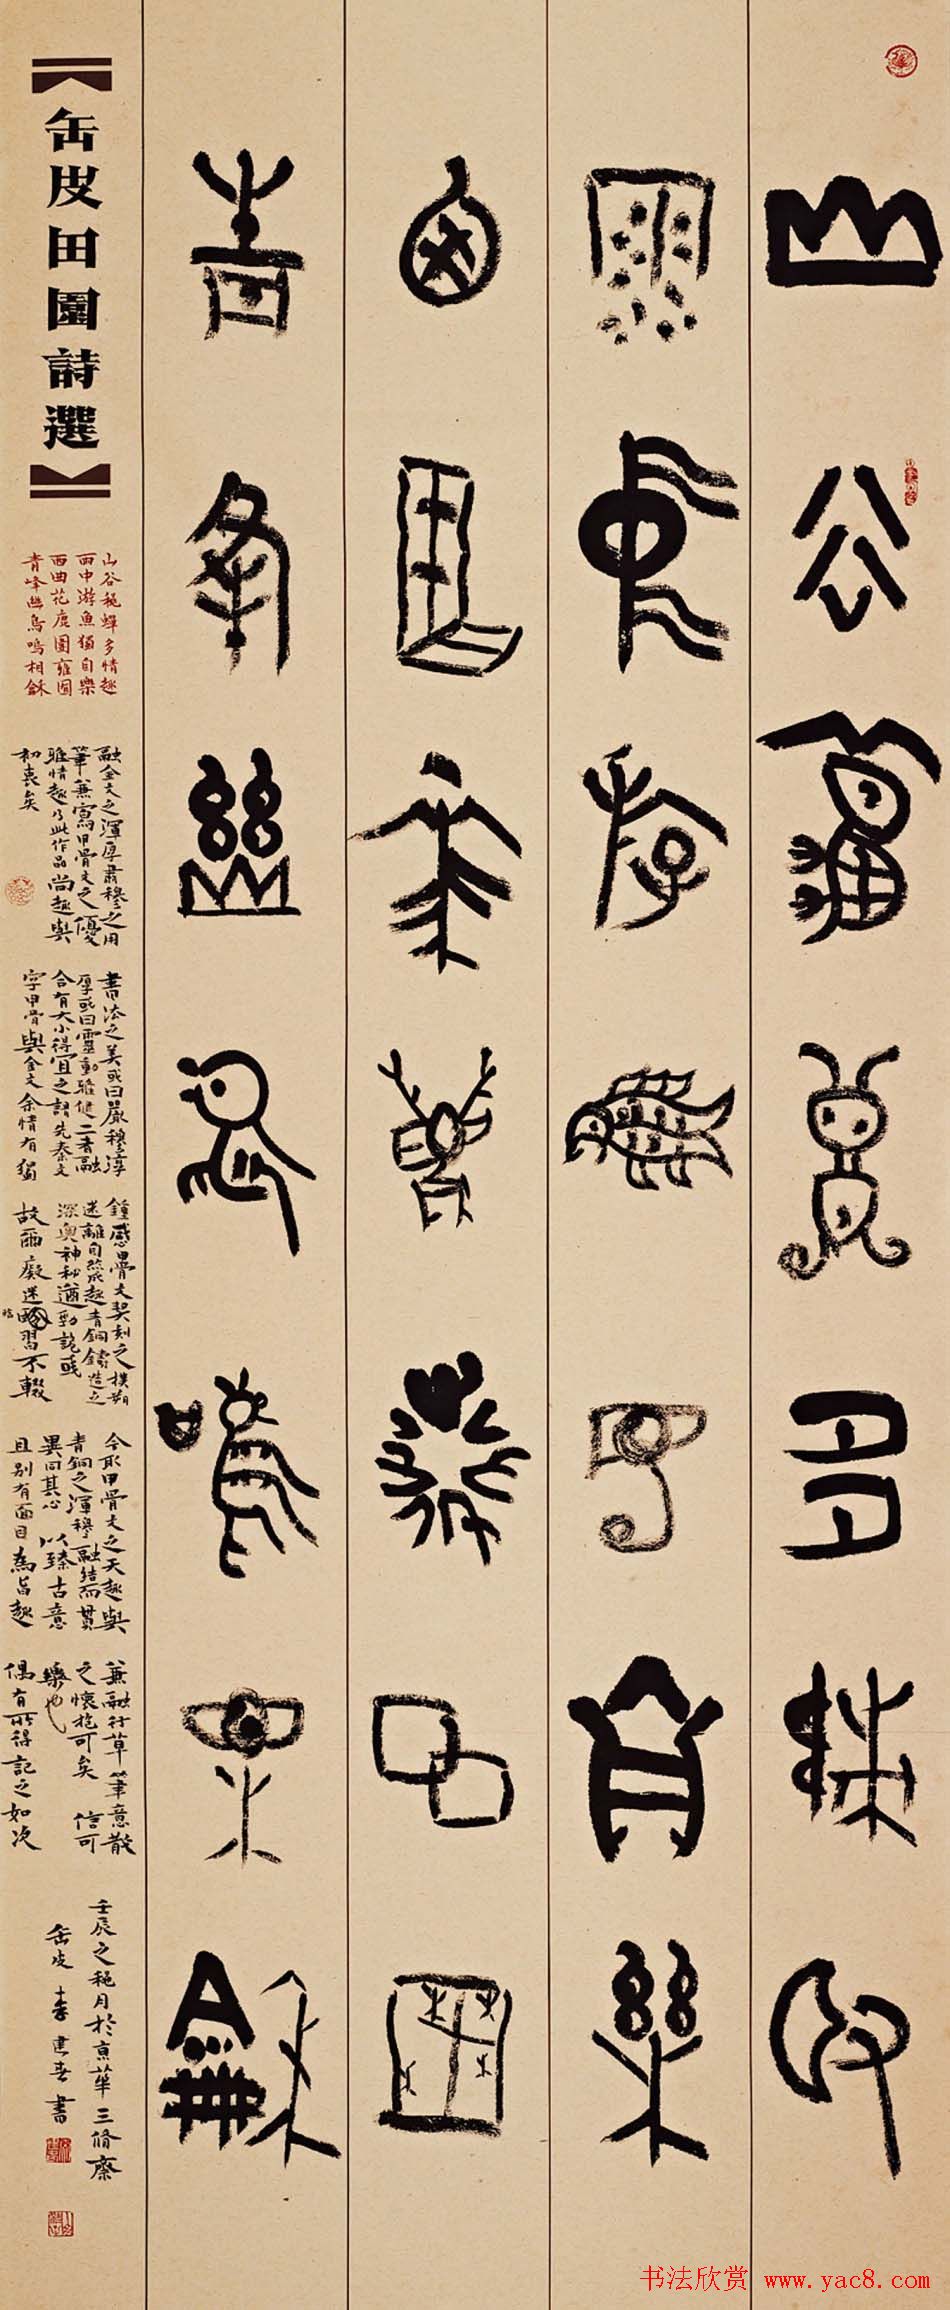 山谷龝蟬多情趣
雨中游魚獨自樂
西曲花鹿園雍囿
青峰幽鳥鳴相龢
【缶皮田園詩選】
山谷龝蟬多情趣
雨中游魚獨自樂
西曲花鹿園雍囿
青峰幽鳥鳴相龢
融金文之渾厚肅穆之用
筆兼寫甲骨文之優
雅情趣乃此作品尚趣與
初衷矣
書法之美或曰嚴穆淳
厚或曰靈動雅健二者融
合有大小得宜之謂先秦文
字甲骨與金文余情有獨
鍾感甲骨文契刻之樸朔
迷離自然成趣青銅鑄造之
深奧神秘遒勁詭或
故爾癡迷臨習不輟
今取甲骨文之天趣與
青銅之渾穆融結而貫
異同其心以臻古意
且別有面目為旨趣
兼融行草筆意散
之懷抱可矣 信可
樂也
偶有所得記之如次
壬辰之龝月於京華三脩齋
缶皮李建春書
书法欣赏 www.yac8.com